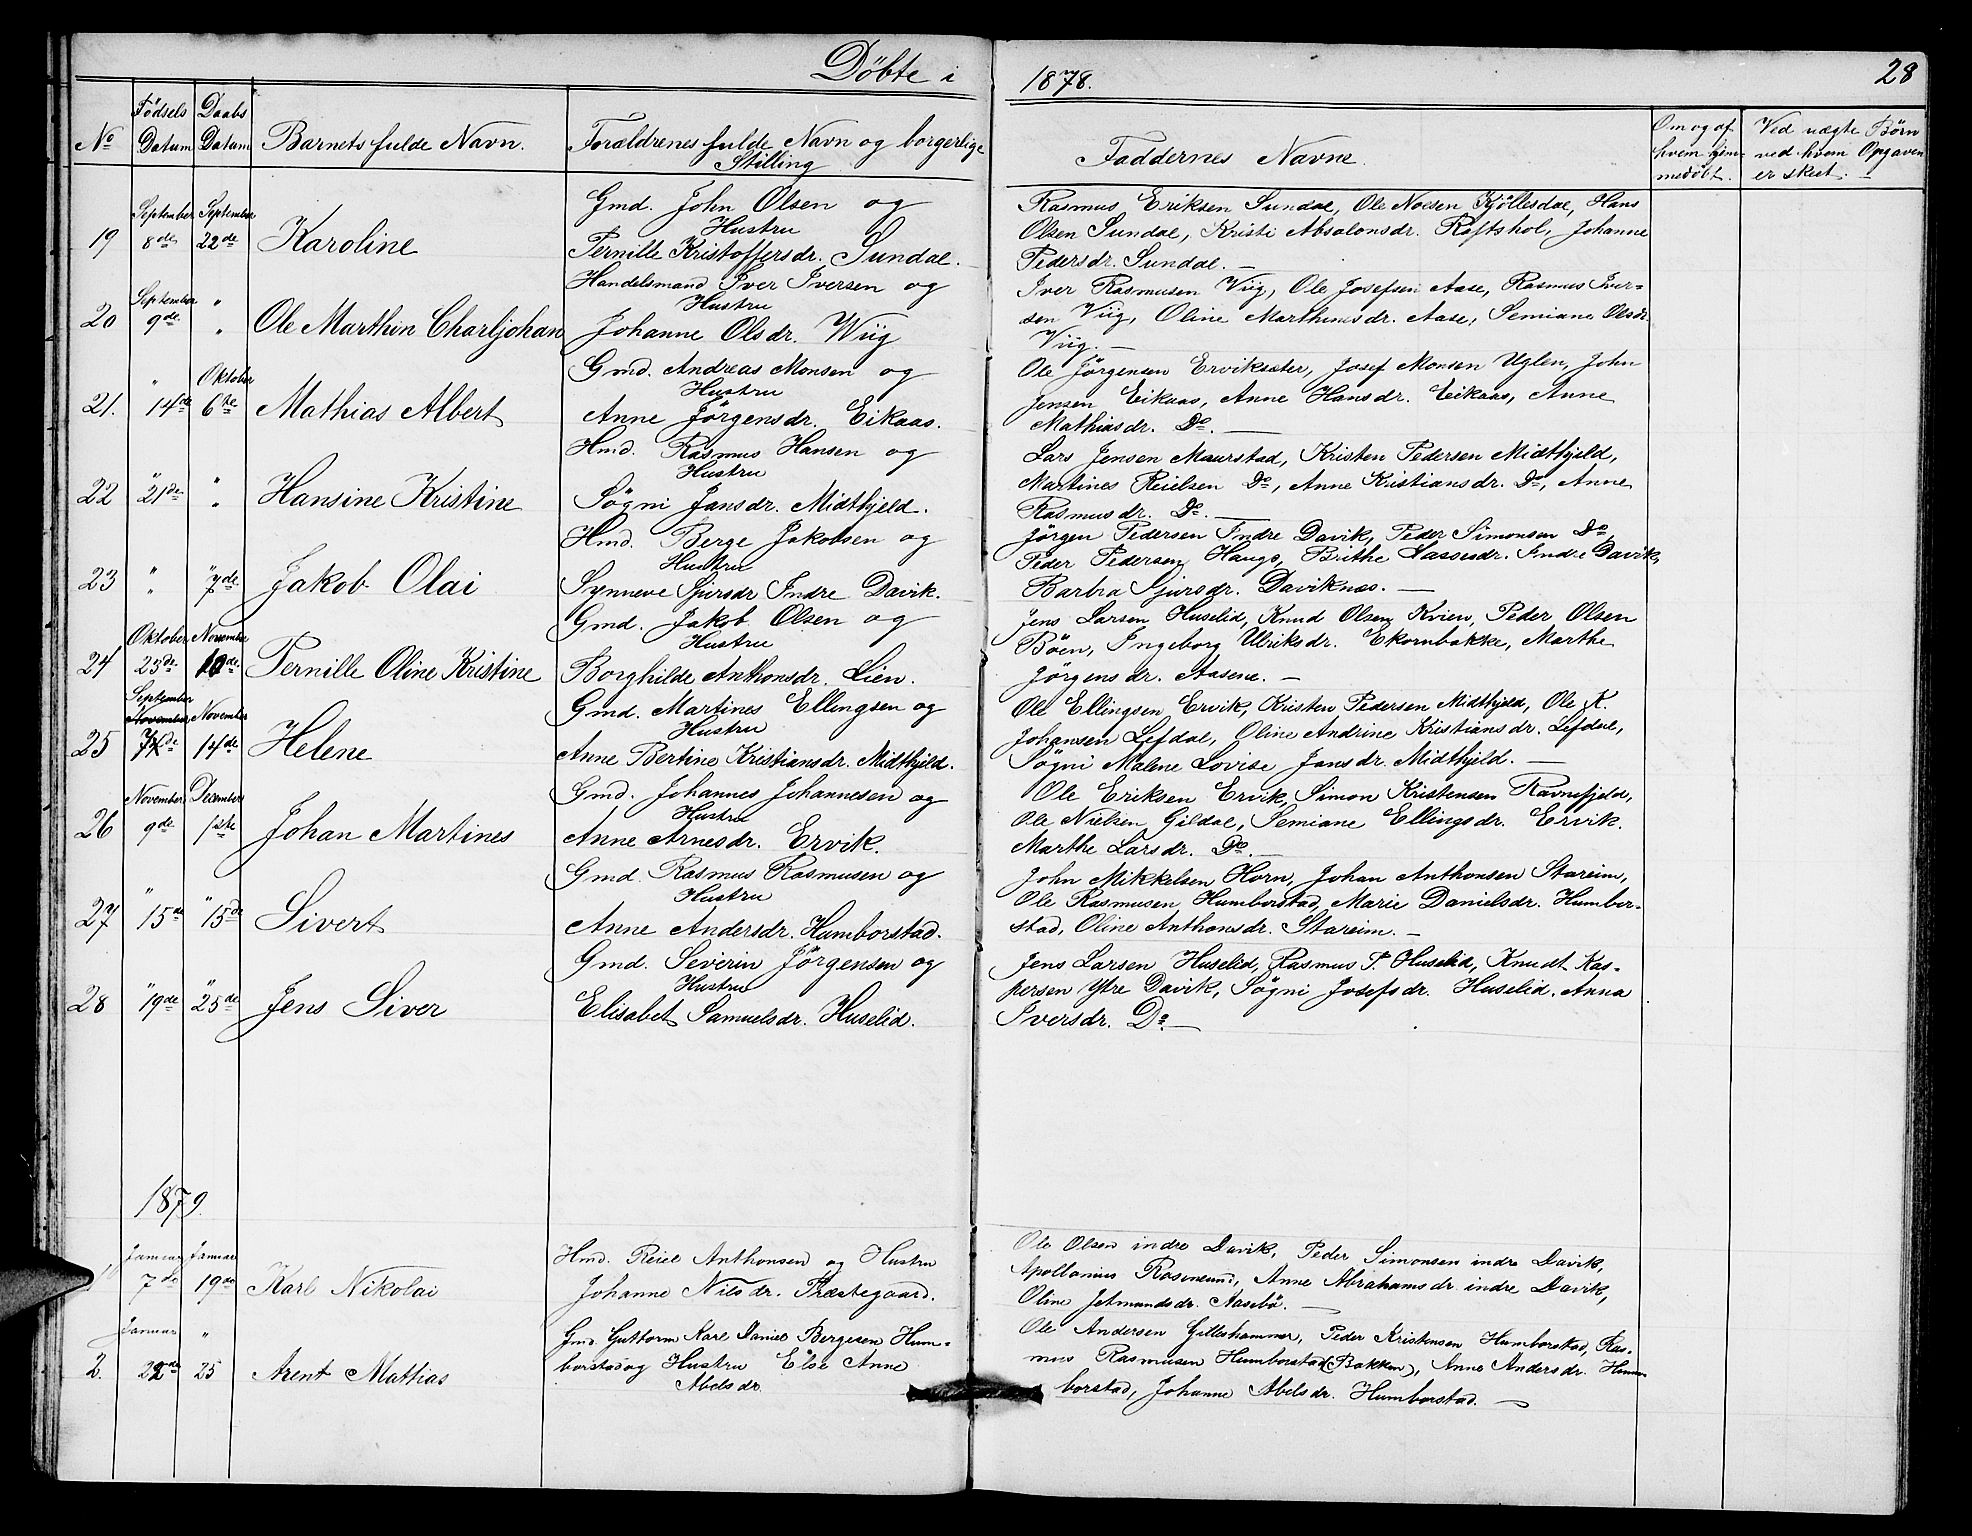 Döbte i
1878.
28
No
Födsels Datum
Daabs Datum
Barnets fulde Navn.
Forældrenes fulde Navn og borgerlige Stilling
Faddernes Navne.
Om og af hvem hjemmedöbt.
Ved uægte Börn ved hvem Opgaven er skeet.
19
September 8de
September 22de
Karoline
Gmd. John Olsen og
Hustru
Pernille Kristoffersdr. Sundal.
Rasmus Eriksen Sundal, Ole Noesen Kjöllesdal, Hans
Olsen Sundal, Kristi Absalonsdr. Roftshol, Johanne
Pedersdr. Sundal.
20
September 9de
"
Ole Marthin Charljohan
Handelsmand Iver Iversen og
Hustru
Johanne Olsdr. Wiig
Iver Rasmusen Viig, Ole Josefsen Aase, Rasmus Iver-
sen Viig, Oline Marthinesdr. Aase, Semiane Olsdr.
Viig.
21.
" 14de
Oktober 6te
Mathias Albert
Gmd. Andreas Monsen og
Hustru
Anne Jörgensdr. Eikaas.
Ole Jörgensen Erviksæter, Josef Monsen Uglen, John
Jensen Eikaas, Anne Hansdr. Eikaas, Anne
Mathiasdr. Do.
22
" 21de
"
Hansine Kristine
Hmd. Rasmus Hansen og
Hustru
Sögni Jansdr. Midthjeld.
Lars Jensen Maurstad, Kristen Pedersen Midthjeld,
Martines Reielsen Do, Anne Kristiansdr. Do, Anne
Rasmusdr. Do.
23
"
" 7de
Jakob Olai
Hmd. Berge Jakobsen og
Hustru
Synneve Sjursdr Indre Davik.
Jörgen Pedersen Indre Davik, Peder Simonsen Do,
Peder Pedersen Hauge, Brithe Lassesdr. Indre Davik,
Barbra Sjursdr. Daviknes.
24
Oktober 23de
November 10de
Pernille Oline Kristine
Gmd. Jakob Olsen og
Hustru
Borghilde Anthonsdr. Lien.
Jens Larsen Huselid, Knud Olsen Kvien, Peder Olsen
Böen, Ingeborg Ulriksdr. Ekornbakke, Marthe
Jörgensdr. Aasene.
25
September
November
November 14de
Helene
Gmd. Martines Ellingsen og
Hustru
Anne Bertine Kristiansdr. Midthjeld.
Ole Ellingsen Ervik, Kristen Pedersen Midthjeld, Ole K.
Johansen Lefdal, Oline Andrine Kristiansdr. Lefdal,
Sögni Malene Lovise Jansdr. Midthjeld.
26
November 9de
December 1ste
Johan Martines
Gmd. Johannes Johannesen og
Hustru
Anne Arnesdr. Ervik.
Ole Eriksen Ervik, Simon Kristensen Ravnefjeld,
Ole Nielsen Gildal, Semiane Ellingsdr. Ervik.
Marthe Larsdr. Do.
27
" 15de
" 15de
Sivert
Gmd. Rasmus Rasmusen og
Hustru
Anne Andersdr. Humborstad.
John Mikkelsen Horn, Johan Anthonsen Stareim,
Ole Rasmusen Humborstad, Marie Danielsdr. Humbor-
stad, Oline Anthonsdr. Stareim.
28
" 19de
" 25de
Jens Siver
Gmd. Severin Jörgensen og
Hustru
Elisabet Samuelsdr. Huselid.
Jens Larsen Huselid, Rasmus P. Huselid, Knudt Kas-
persen Ytre Davik, Sögni Josefsdr. Huselid. Anna
Iversdr. Do.
1879.
1
Januar 7de
Januar 19de
Karl Nikolai
Hmd. Reiel Anthonsen og Hustru
Johanne Nilsdr. Præstegaard.
Ole Olsen indre Davik, Peder Simonsen indre Davik,
Apollonius Rosensund, Anne Abrahamsdr. indre Davik,
Oline Jetmundsdr. Aasebö.
2.
Januar 22de
" 25
Arent Mathias
Gmd. Guttorm Karl Daniel Bergesen Hum-
borstad og Hustru Else Anne
Abelsdr.
Ole Andersen Gilleshammer, Peder Kristensen Humborstad, Ras-
mus Rasmusen Humborstad (Bakken), Anne Andersdr. Hum-
borstad, Johanne Abelsdr. Humborstad.